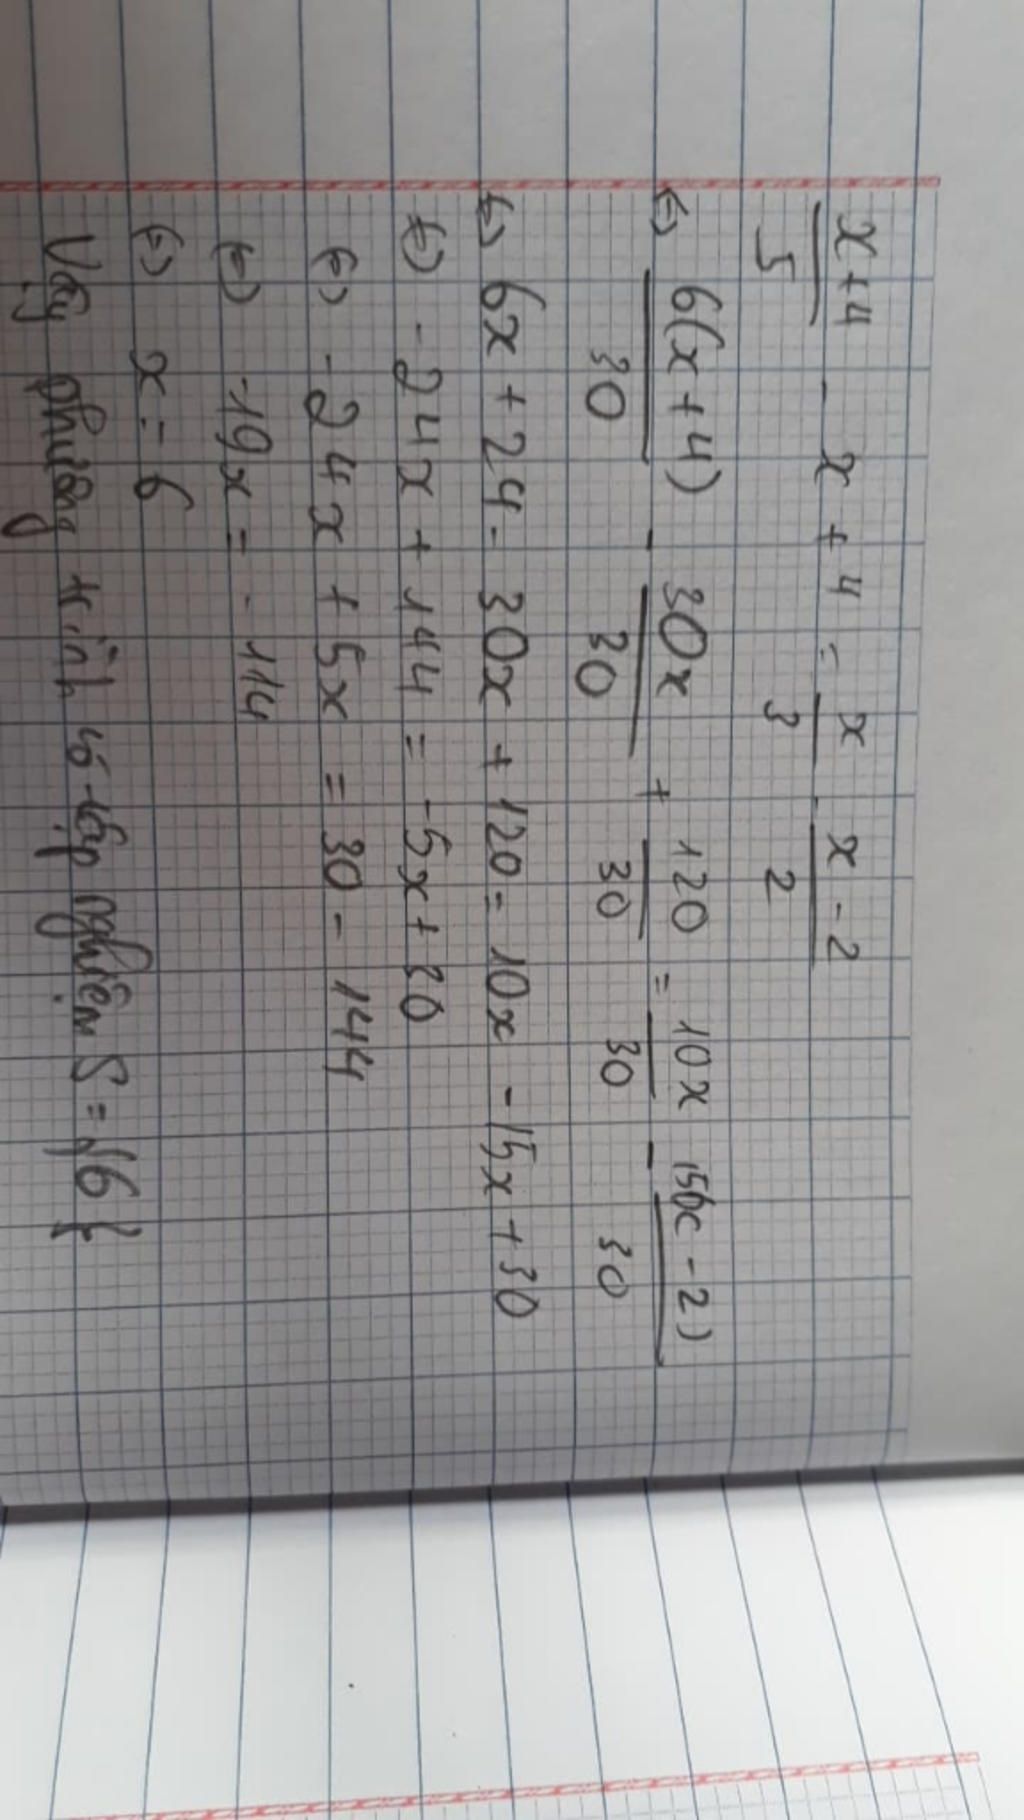 x+4/5 - x + 4 = x/3 - x-2/2
⇔ 6(x+4)/30 - 30x/30 + 120/30 = 10x/30 - 15(x-2)/30
⇔ 6x + 24 - 30x + 120 = 10x - 15x + 30
⇔ -24x + 144 = -5x + 30
⇔ -24x + 5x = 30 - 144
⇔ -19x = -114
⇔ x = 6
Vậy phương trình có tập nghiệm S = {6}